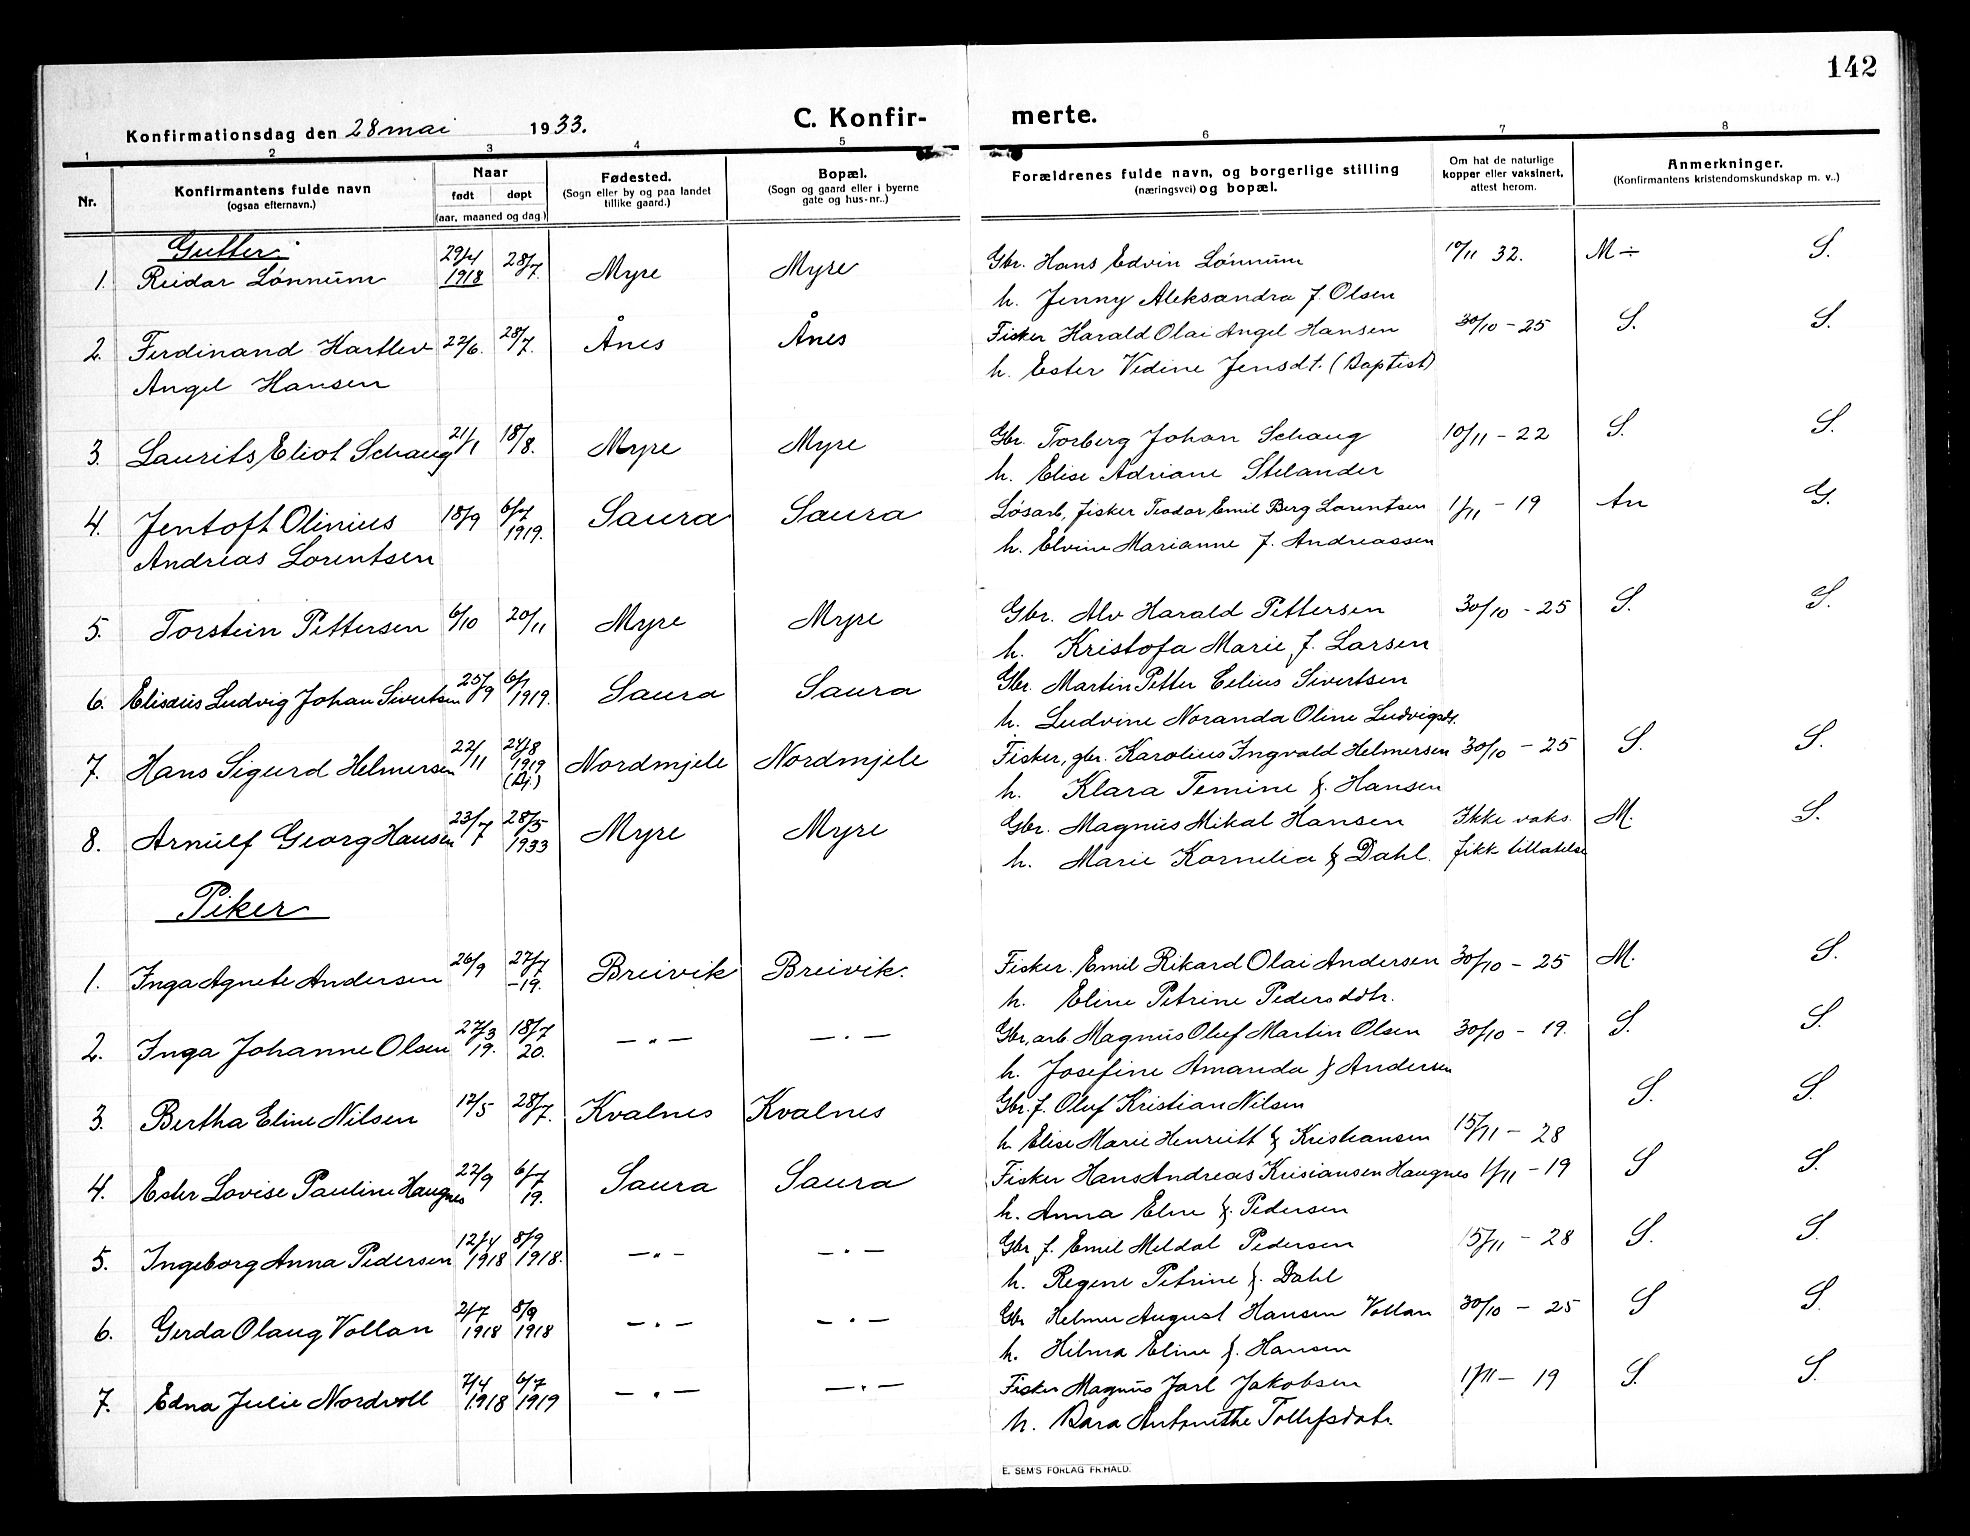 142
Konfirmationsdag den 28 mai 1933.
C. Konfir- merte.
1 2 3 4 5 6 7 8
Nr.
Konfirmantens fulde navn
(ogsaa efternavn.)
Naar
født døpt
(aar, maaned og dag.)
Fødested.
(Sogn eller by og paa landet
tillike gaard.)
Bopæl.
(Sogn og gaard eller i byerne
gate og hus-nr..)
Forældrenes fulde navn, og borgerlige stilling
(næringsvei) og bopæl.
Om hat de naturlige
kopper eller vaksinert,
attest herom.
Anmerkninger.
(Konfirmantens kristendomskundskap m. v..)
Gutter:
1. Reidar Lønnum 29/4 1918 28/7. Myre Myre Gbr. Hans Edvin Lønnum 10/11 32. M÷ S.
h. Jenny Aleksandra f. Olsen
2. Ferdinand Hartlev 22/6. 28/7. Ånes Ånes Fisker Harald Olai Angel Hansen 30/10 - 25 S. S.
Angel Hansen h. Ester Vedine Jensdt. (Baptist)
3. Laurits Eliot Schaug 21/1 18/8. Myre Myre Gbr. Torberg Johan Schaug 10/11 - 22 S. S.
h. Elise Adriane Stelander
4. Jentoft Olinius 18/9 6/7 1919. Saura Saura Løsarb, fisker Teodor Emil Berg Lorentsen 1/11 - 19 An G.
Andreas Lorentsen h. Elvine Marianne f. Andreassen
5. Torstein Pettersen 6/10 20/11 Myre Myre Gbr. Alv Harald Pettersen 30/10 - 25 S. S.
h. Kristofa Marie f. Larsen
6. Elisæus Ludvig Johan Sivertsen 25/9 6/7 1919. Saura Saura Gbr. Martin Petter Celius Sivertsen
h. Ludvine Noranda Oline Ludvigsdt.
7. Hans Sigurd Helmersen 22/11 24/8 1919 (Dj.) Nordmjele Nordmjele Fisker, gbr. Karolius Ingvald Helmersen 30/10 - 25 S. S.
h. Klara Temine f. Hansen
8. Arnulf Georg Hansen 23/7 28/5 1933 Myre Myre Gbr. Magnus Mikal Hansen Ikke vaks. M. S.
h. Marie Kornelia f Dahl. fikk tillatelse
Piker
1. Inga Agnete Andersen 26/9 27/7 -19. Breivik Breivik. Fisker. Emil Rikard Olai Andersen 30/10 - 25 M. S.
h. Eline Petrine Pedersddtr.
2. Inga Johanne Olsen 27/3 19. 18/7 20. — „ — — „ — Gbr, arb. Magnus Oluf Martin Olsen 30/10 - 19. S. S.
h. Josefine Amanda f Andersen
3. Bertha Eline Nilsen 12/5 28/7. Kvalnes Kvalnes Gbr. f. Oluf Kristian Nilsen S. S.
h. Elise Marie Henriett f Kristiansen 15/11 - 28
4. Ester Lovise Pauline Haugnes 22/9 6/7 19. Saura Saura Fisker Hans Andreas Krisiansen Haugnes 1/11 - 19 S S.
h. Anna Eline f. Pedersen
5. Ingeborg Anna Pedersen 12/4 1918 8/9 1918. — „ — — „ — Gbr f. Emil Meldal Pedersen 15/11 - 28 S. S.
h. Regene Petrine f. Dahl
6. Gerda Olaug Vollan 2/7 1918 8/9 1918 — „ — — „ — Gbr Helmer August Hansen Vollan 30/10 - 25 S S.
h. Hilma Eline f. Hansen
7. Edna Julie Nordvoll 7/4 1918 6/7 1919 — „ — — „ — Fisker Magnus Jarl Jakobsen 1/11 - 19 S. S.
h. Dara Antonethe Tollefsdatr
E. SEM'S FORLAG FR.HALD.